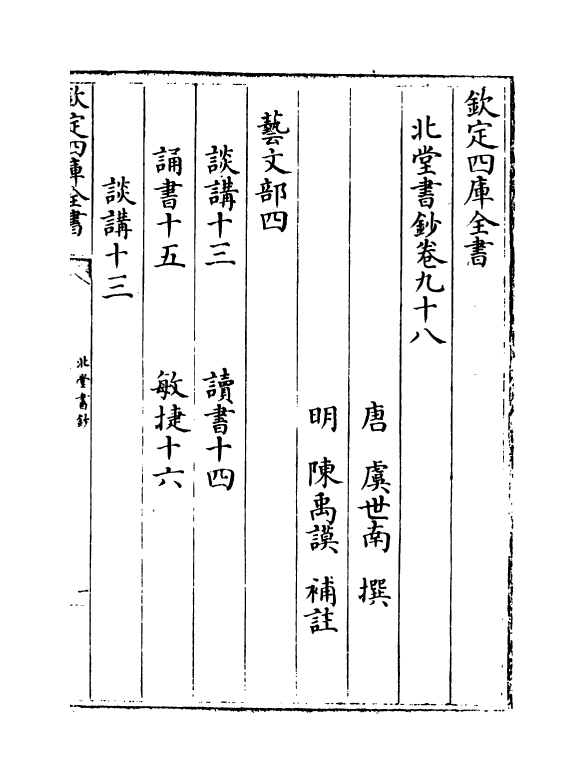 欽定四庫全書
北堂書鈔卷九十八
唐 虞世南 撰
明 陳禹謨 補註
藝文部四
談講十三 讀書十四
誦書十五 敏捷十六
談講十三
欽定四庫全書
北堂書鈔
一